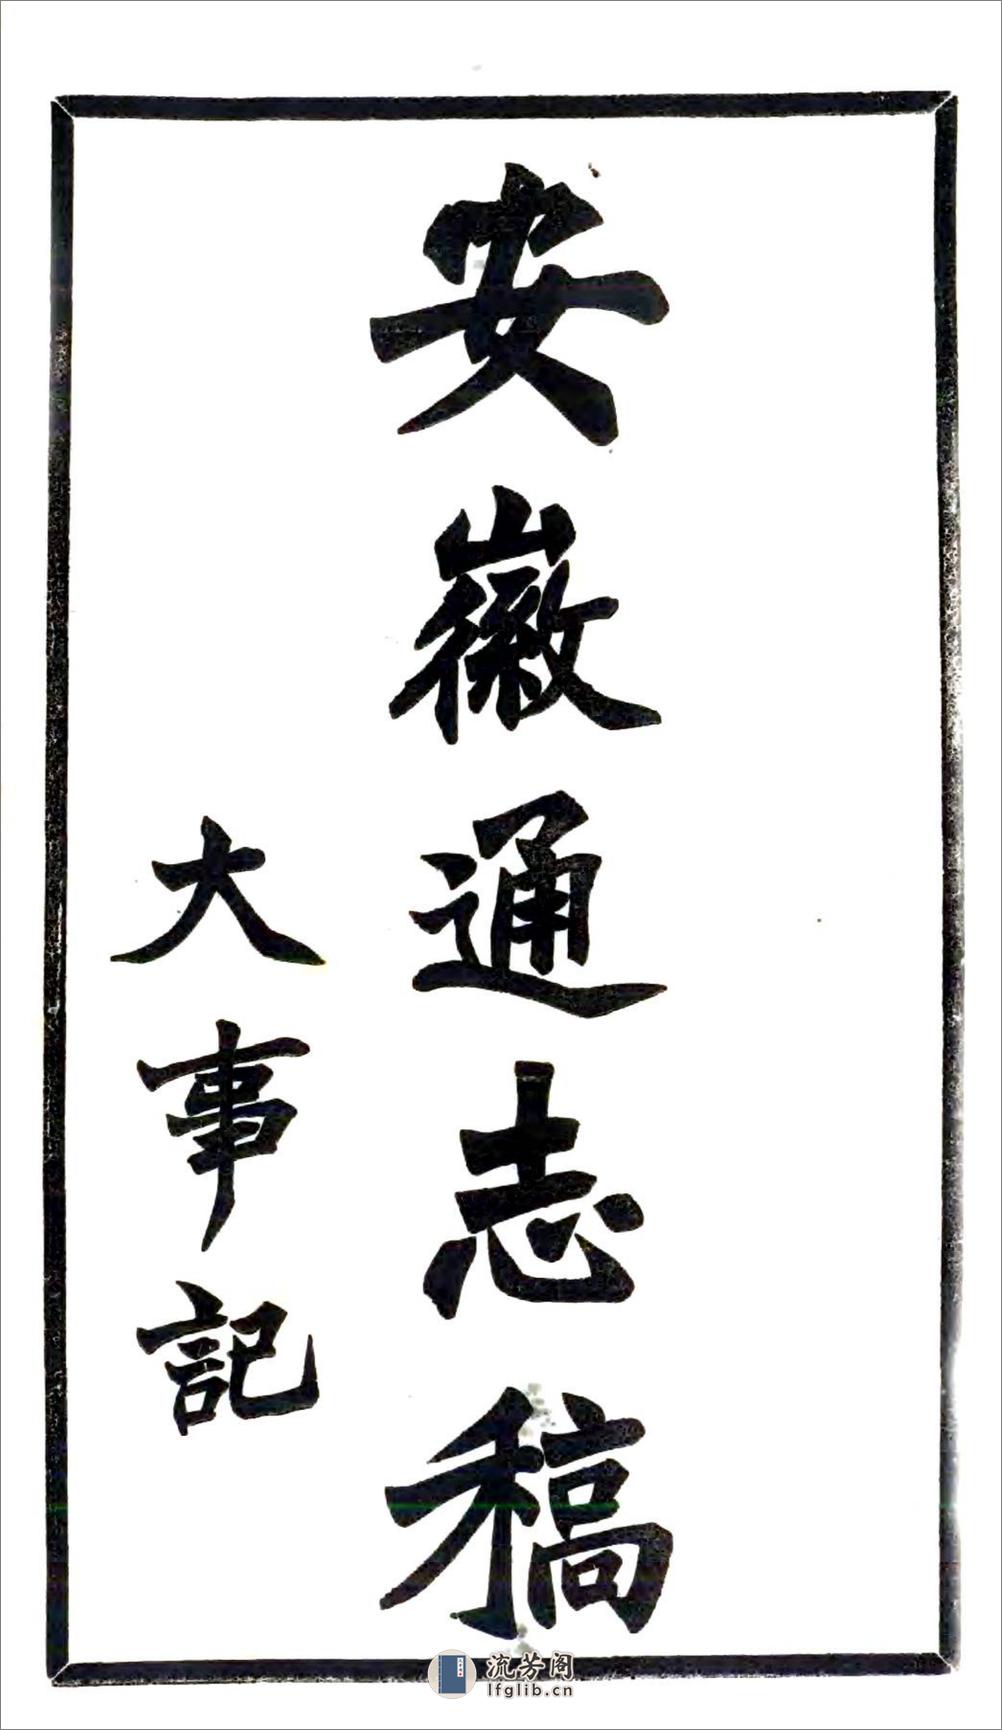 安徽通志稿
大事記
流芳阁
lfglib.cn